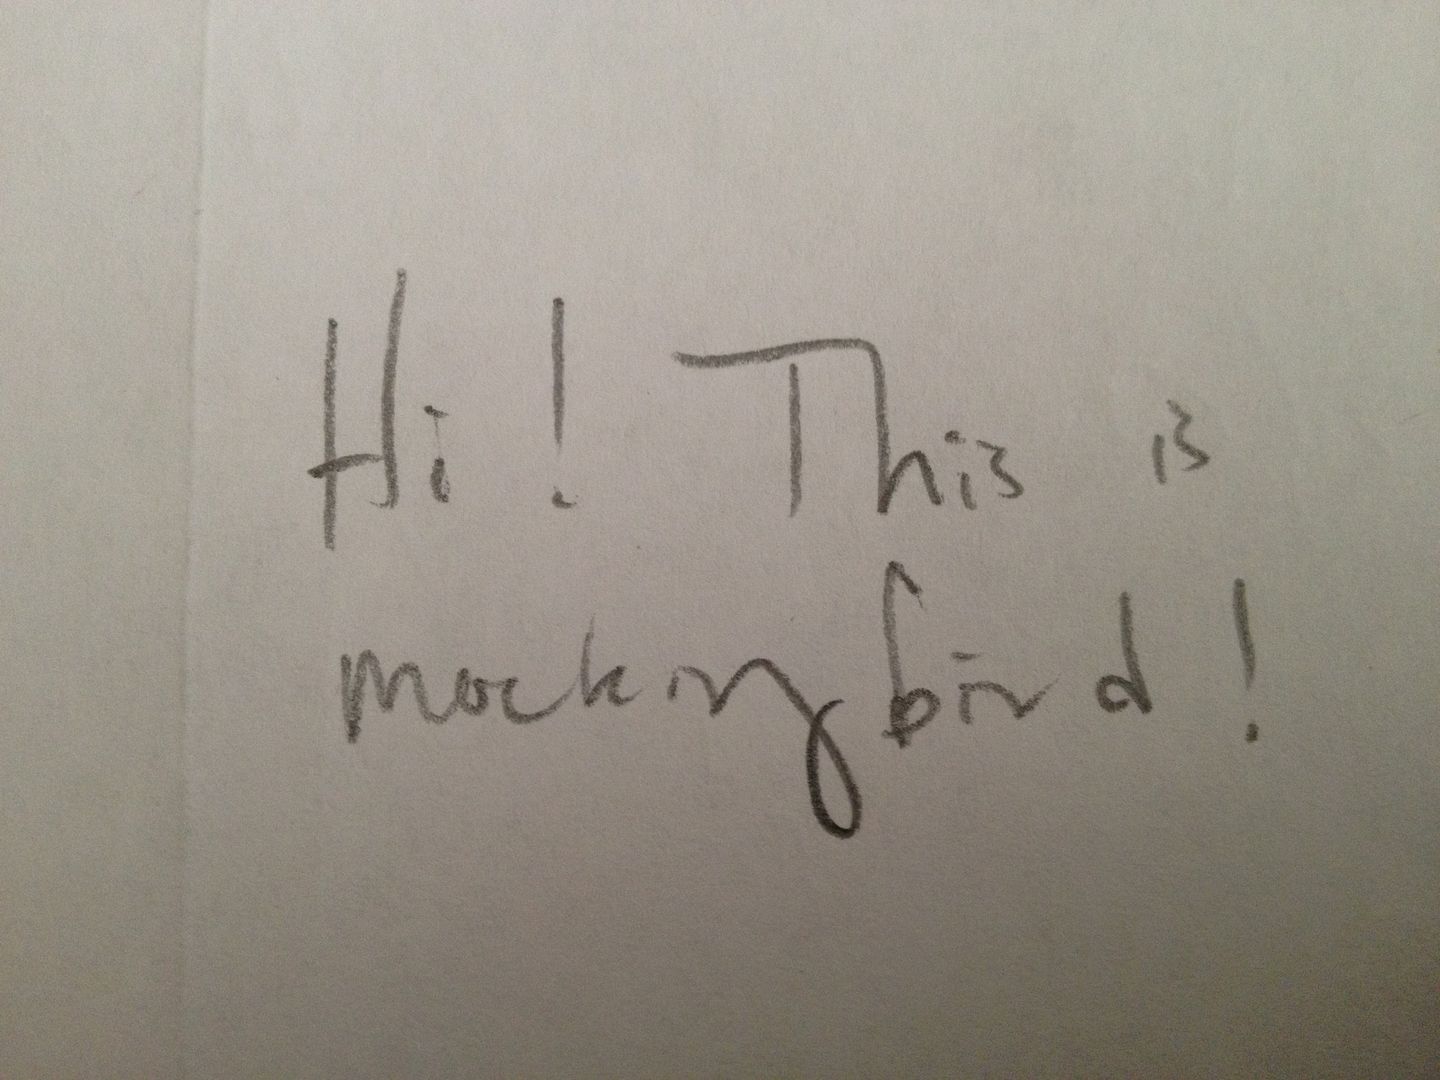 Hi! This is
mockingbird!